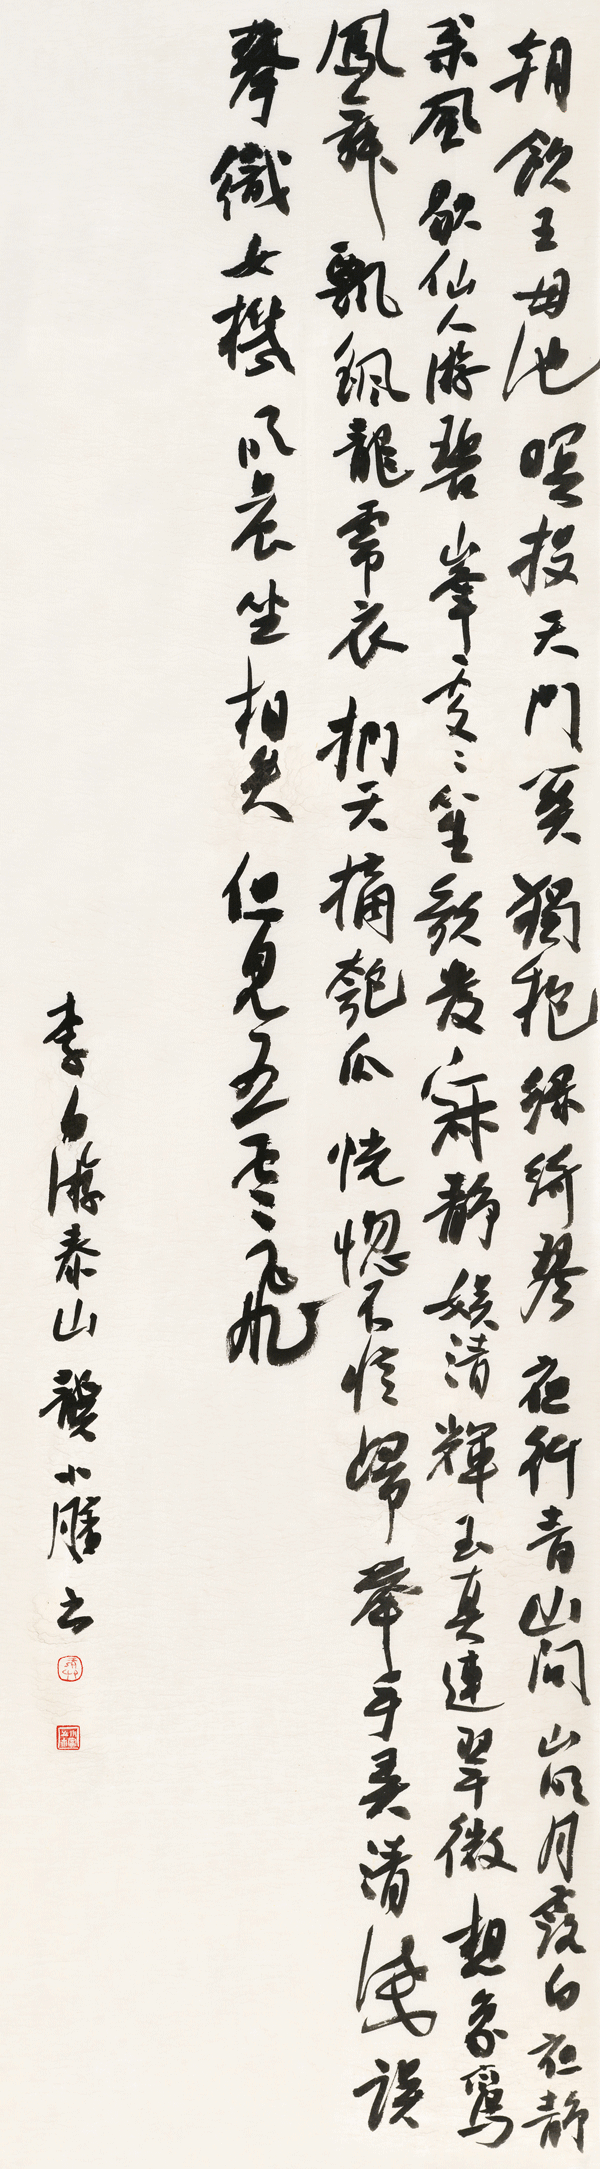 朝飲王母池暝投天門關獨抱綠綺琴夜行青山間山明月露白夜静
松風歇仙人游碧峯處々笙歌發寂静娱清輝玉真連翠微想象鸞
鳳舞飄颻龍虎衣捫天摘匏瓜恍惚不憶歸舉手弄清淺誤
攀織女機明晨坐相失但見五雲飛
李白游泰山龔小书